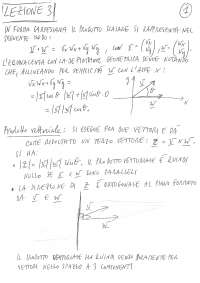 LEZIONE 3
1
IN FORMA CARTESIANA IL PRODOTTO SCALARE SI RAPPRESENTA NEL
SEGUENTE MODO:
V · W = Vx Wx + Vy Wy , con V = (Vx Vy) , W = (Wx Wy).
L'EQUIVALENZA CON LA DEFINIZIONE GEOMETRICA SEGUE NOTANDO
CHE, ALLINEANDO PER SEMPLICITÀ W CON L'ASSE X:
Vx Wx + Vy Wy =
= |V| cos θ · |W| + |V| sin θ · 0
= |V| |W| cos θ.
y
V
θ
W
x
Prodotto vettoriale: SI ESEGUE FRA DUE VETTORI E DÀ
COME RISULTATO UN TERZO VETTORE: Z = V × W.
SI HA:
• |Z| = |V| |W| sin θ. IL PRODOTTO VETTORIALE È QUINDI
NULLO SE V E W SONO PARALLELI
• LA DIREZIONE DI Z È ORTOGONALE AL PIANO FORMATO
DA V E W
V
W
IL PRODOTTO VETTORIALE HA QUINDI SENSO SOLAMENTE PER
VETTORI NELLO SPAZIO A 3 COMPONENTI